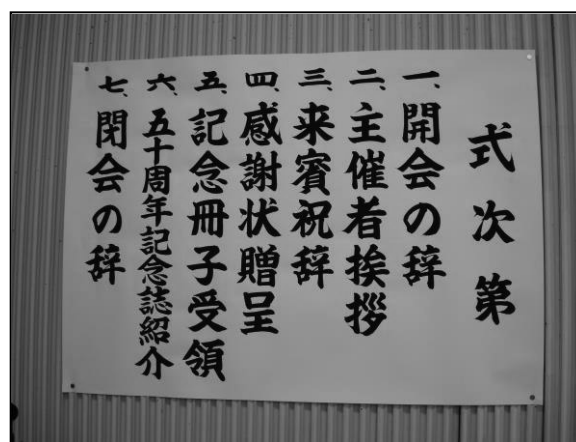 式次第
一、開会の辞
二、主催者挨拶
三、来賓祝辞
四、感謝状贈呈
五、記念冊子受領
六、五十周年記念誌紹介
七、閉会の辞